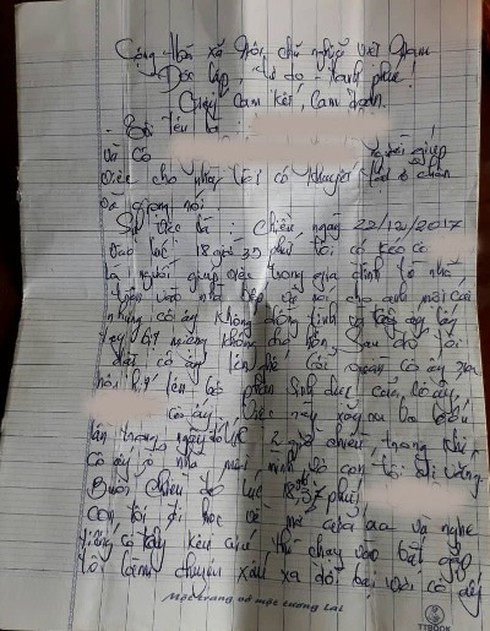 Cộng Hòa xã hội chủ nghĩa việt Nam
Độc lập, tự do - hạnh phúc!
Giấy Cam Kết, Cam đoan.
- Tôi tên là :
và Cô người giúp
việc cho nhà tôi có khuyết tật ở chân
và giọng nói.
Sự việc là : Chiều ngày 22/12/2017
Vào lúc 18 giờ 35 phút tôi có kéo cô
là người giúp việc trong gia đình từ nhà
vào nhà bếp và nói cho anh một cái
nhưng cô ấy không đồng tình và lấy
tay bịt miệng không cho hôn, Sau đó tôi
đặt cô ấy lên ghế cởi quần cô ấy
hôn hít lên bộ phận sinh dục của cô ấy,
cô ấy. việc này xảy ra
lần trong ngày 2 giờ chiều, trong khi
cô ấy ở nhà một mình do con tôi đi vắng.
Buổi chiều đó lúc 18h37 phút
con tôi đi học về mở cửa ra và nghe
tiếng cô kêu cứu thì chạy vào bắt gặp
tôi làm chuyện xấu xa đồi bại với cô ấy
Một trang vở một tương lai
TTBOOK